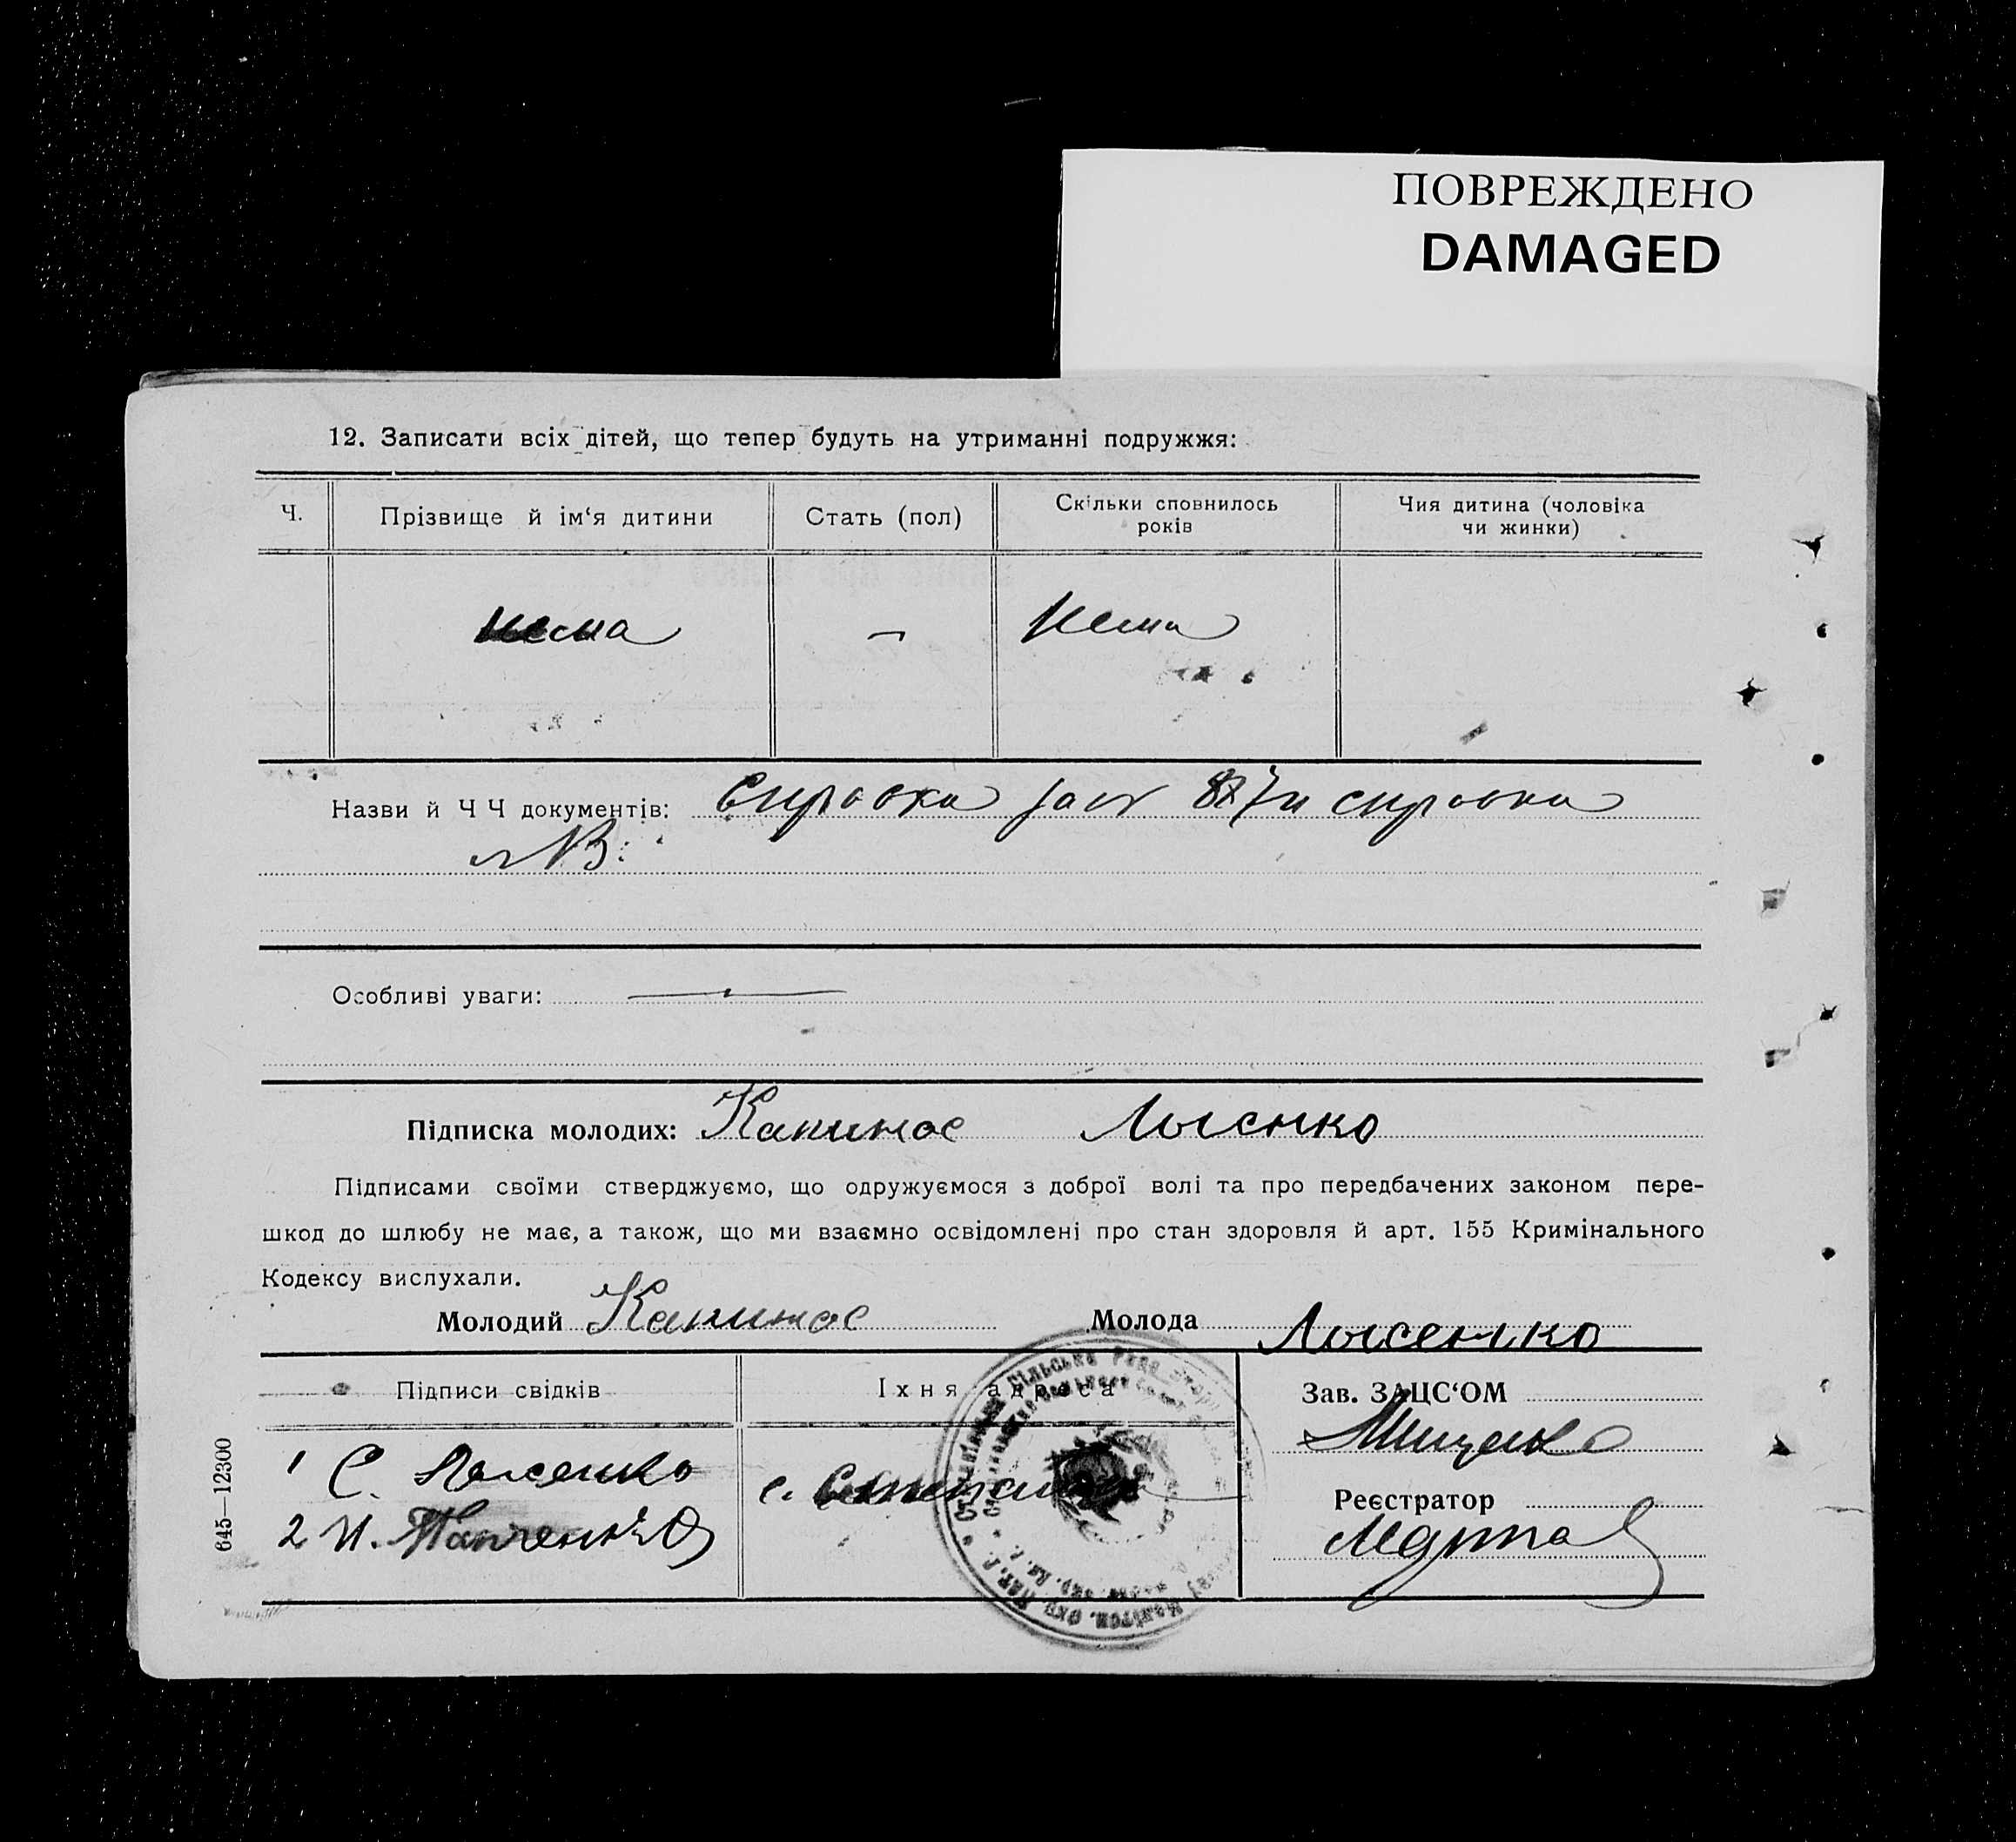 ПОВРЕЖДЕНО
DAMAGED
12. Записати всіх дітей, що тепер будуть на утриманні подружжя:
Ч.
Прізвище й ім‘я дитини
Стать (пол)
Скільки сповнилось
років
Чия дитина (чоловіка
чи жинки)
нема
—
нема
Назви й Ч Ч документів: Справка 827 и справка
Особливі уваги: —
Підписка молодих: Капинос Лысенко
Підписами своїми стверджуємо, що одружуємося з доброї волі та про передбачених законом пере-
шкод до шлюбу не має, а також, що ми взаємно освідомлені про стан здоровля й арт. 155 Кримінального
Кодексу вислухали.
Молодий Капинос Молода Лысенко
Підписи свідків
Їхня адреса
Зав. ЗАЦС‘ОМ
1 С. Лысенко
2 И. Панченко
с.
Реєстратор
645—12300
Сільська Рада